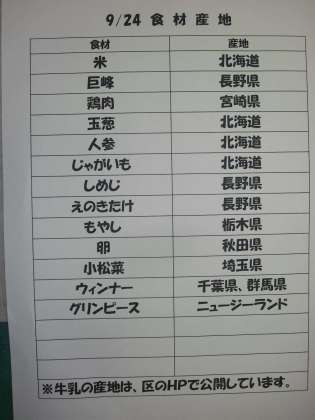 9/24 食 材 産 地
食材 産地
米 北海道
巨峰 長野県
鶏肉 宮崎県
玉葱 北海道
人参 北海道
じゃがいも 北海道
しめじ 長野県
えのきたけ 長野県
もやし 栃木県
卵 秋田県
小松菜 埼玉県
ウィンナー 千葉県、群馬県
グリンピース ニュージーランド
※牛乳の産地は、区のHPで公開しています。